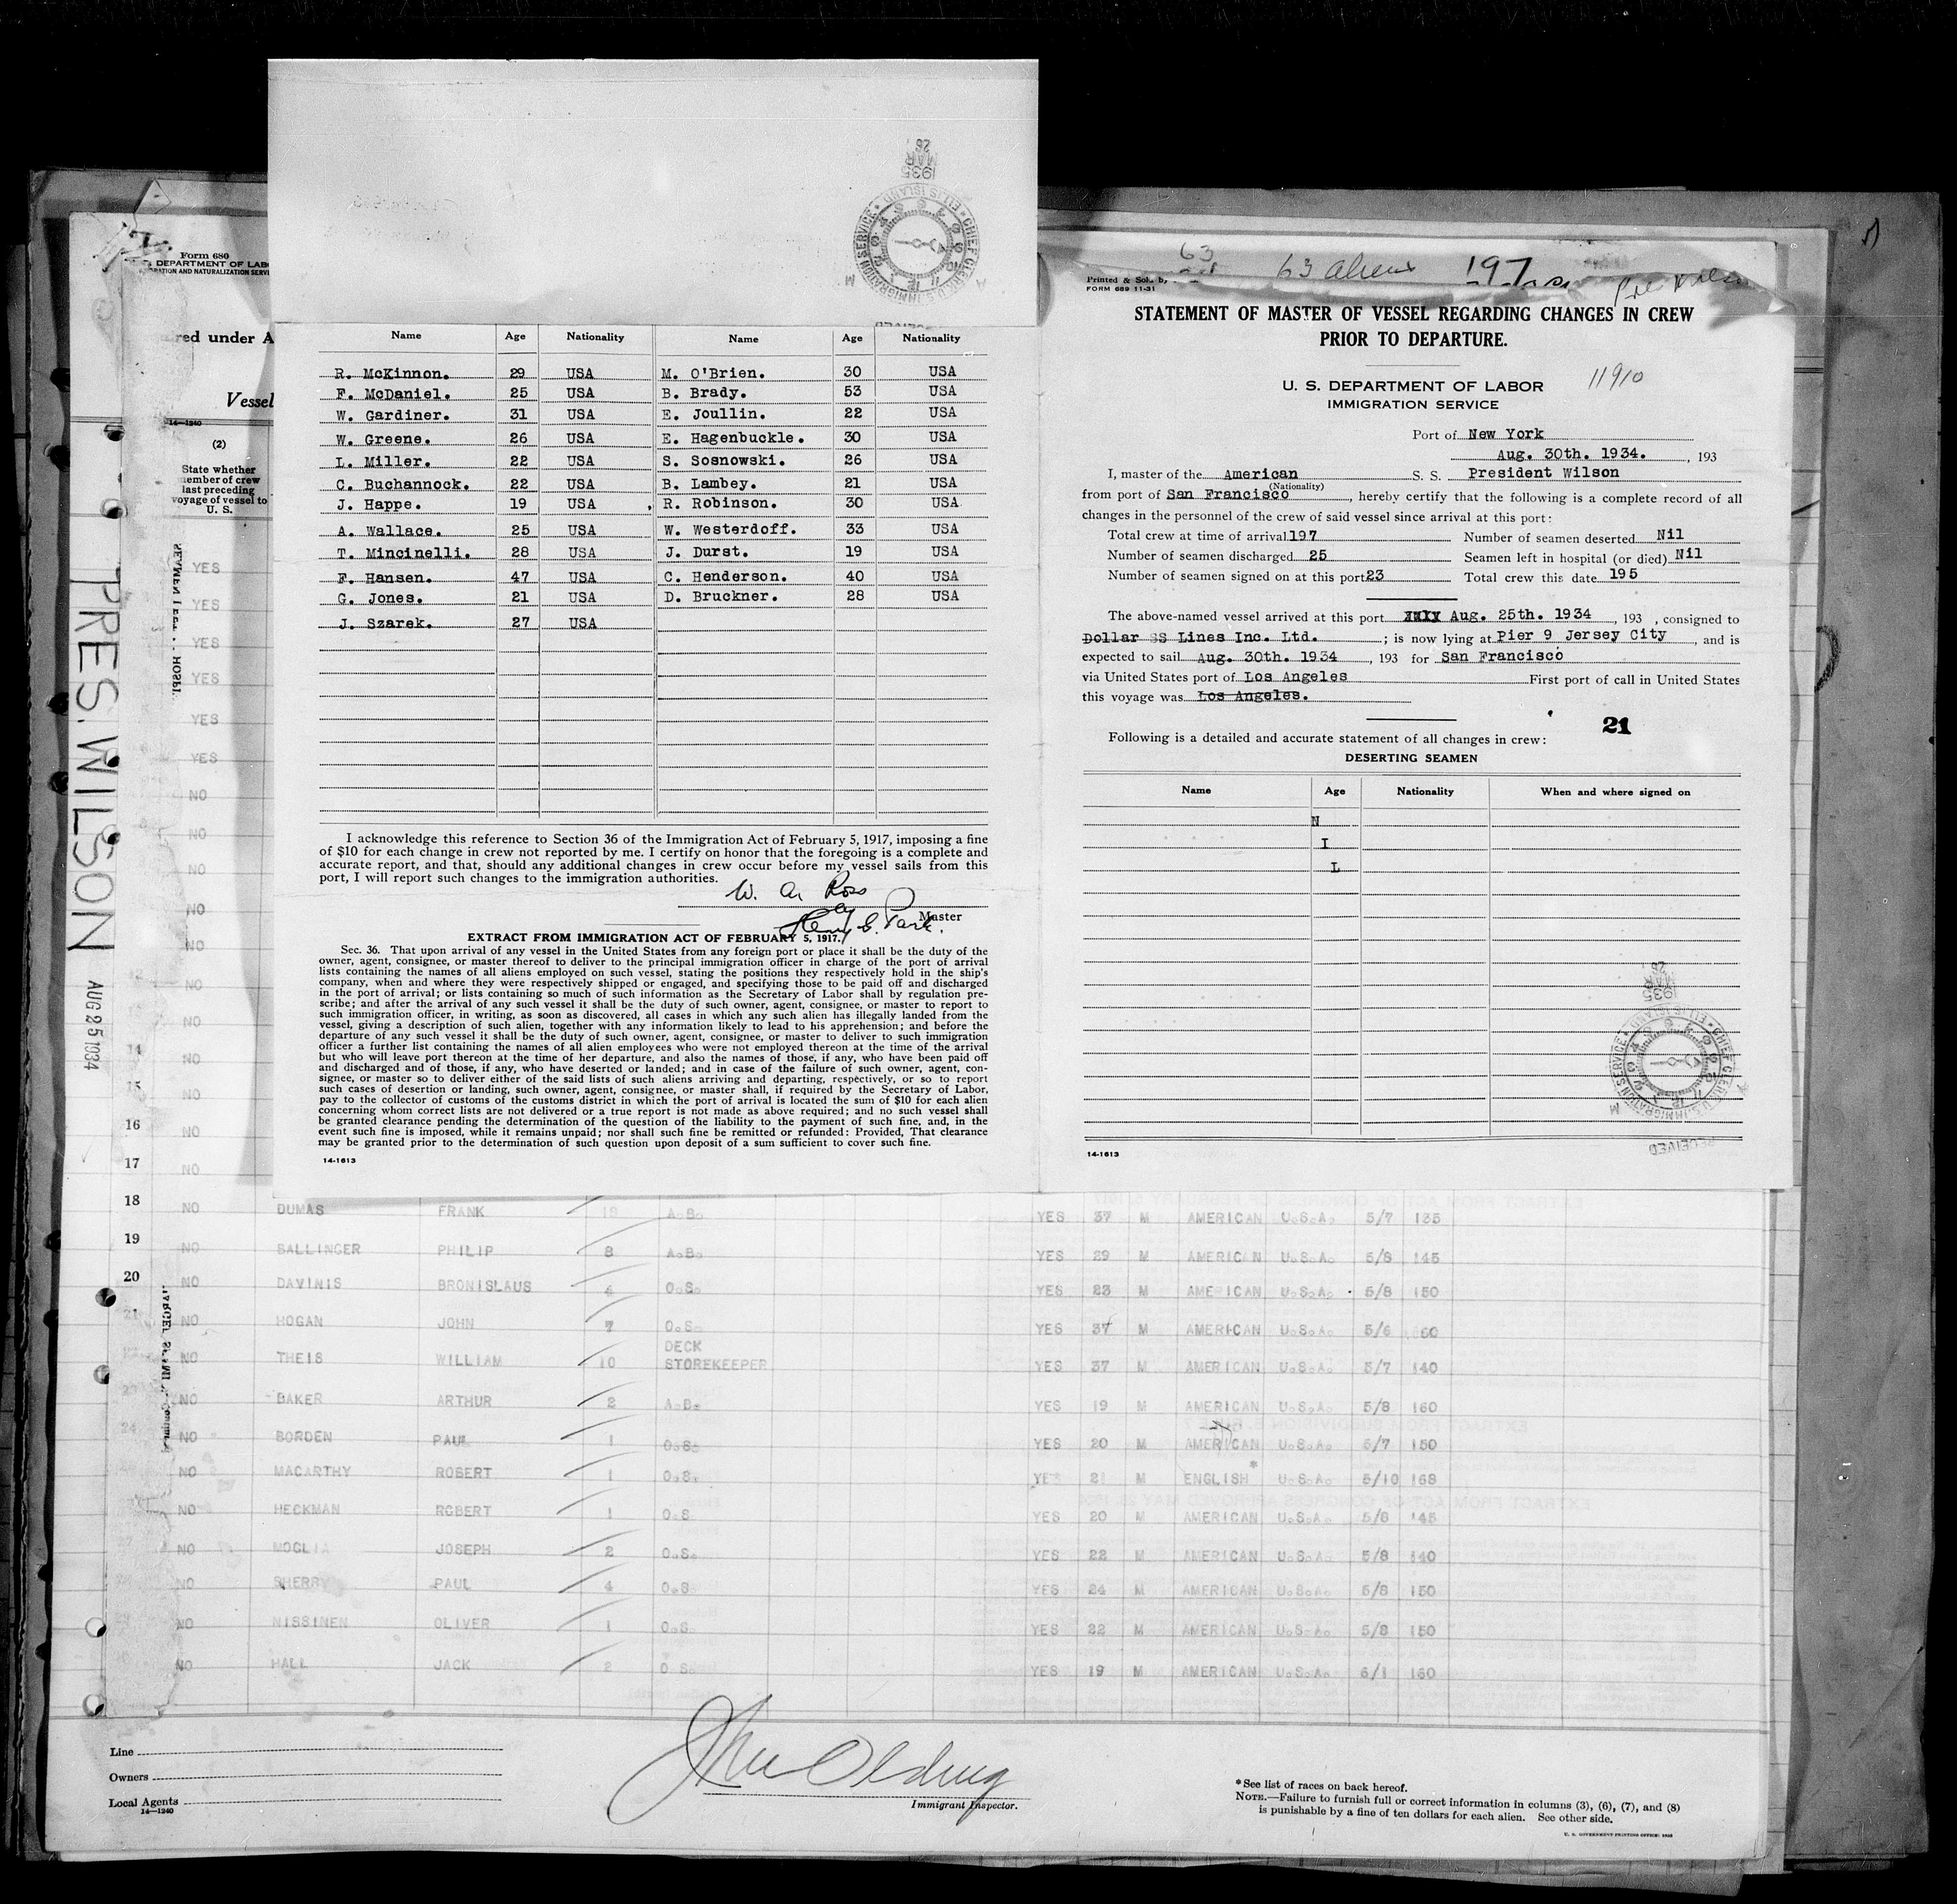 Form 680
DEPARTMENT OF LAB
RATION AND NATURALIZATION SERVI
red under A
Vessel
14—1240
(2)
State whether
member of crew
last preceding
voyage of vessel to
U. S.
PRES. WILSON
AUG 25 1934
YES
YES
YES
YES
YES
YES
NO
NO
NO
NO
NO
NO
NO
14 NO
15 NO
16 NO
17 NO
1935
MAR
26
CHIEF CLERK U.S. IMMIGRATION SERVICE
ELLIS ISLAND
M
Name Age Nationality Name Age Nationality
R. McKinnon. 29 USA M. O'Brien. 30 USA
F. McDaniel. 25 USA B. Brady. 53 USA
W. Gardiner. 31 USA E. Joullin. 22 USA
W. Greene. 26 USA E. Hagenbuckle. 30 USA
L. Miller. 22 USA S. Sosnowski. 26 USA
C. Buchannock. 22 USA B. Lambey. 21 USA
J. Happe. 19 USA R. Robinson. 30 USA
A. Wallace. 25 USA W. Westerdoff. 33 USA
T. Mincinelli. 28 USA J. Durst. 19 USA
F. Hansen. 47 USA C. Henderson. 40 USA
G. Jones. 21 USA D. Bruckner. 28 USA
J. Szarek. 27 USA
I acknowledge this reference to Section 36 of the Immigration Act of February 5, 1917, imposing a fine
of $10 for each change in crew not reported by me. I certify on honor that the foregoing is a complete and
accurate report, and that, should any additional changes in crew occur before my vessel sails from this
port, I will report such changes to the immigration authorities.
W. A. Ross
by
Henry G. Park.
Master
EXTRACT FROM IMMIGRATION ACT OF FEBRUARY 5, 1917.
Sec. 36. That upon arrival of any vessel in the United States from any foreign port or place it shall be the duty of the
owner, agent, consignee, or master thereof to deliver to the principal immigration officer in charge of the port of arrival
lists containing the names of all aliens employed on such vessel, stating the positions they respectively hold in the ship's
company, when and where they were respectively shipped or engaged, and specifying those to be paid off and discharged
in the port of arrival; or lists containing so much of such information as the Secretary of Labor shall by regulation pre-
scribe; and after the arrival of any such vessel it shall be the duty of such owner, agent, consignee, or master to report to
such immigration officer, in writing, as soon as discovered, all cases in which any such alien has illegally landed from the
vessel, giving a description of such alien, together with any information likely to lead to his apprehension; and before the
departure of any such vessel it shall be the duty of such owner, agent, consignee, or master to deliver to such immigration
officer a further list containing the names of all alien employees who were not employed thereon at the time of the arrival
but who will leave port thereon at the time of her departure, and also the names of those, if any, who have been paid off
and discharged and of those, if any, who have deserted or landed; and in case of the failure of such owner, agent, con-
signee, or master so to deliver either of the said lists of such aliens arriving and departing, respectively, or so to report
such cases of desertion or landing, such owner, agent, consignee, or master shall, if required by the Secretary of Labor,
pay to the collector of customs of the customs district in which the port of arrival is located the sum of $10 for each alien
concerning whom correct lists are not delivered or a true report is not made as above required; and no such vessel shall
be granted clearance pending the determination of the question of the liability to the payment of such fine, and, in the
event such fine is imposed, while it remains unpaid; nor shall such fine be remitted or refunded: Provided, That clearance
may be granted prior to the determination of such question upon deposit of a sum sufficient to cover such fine.
14-1613
63
63 aliens 197
Printed & Sold by
FORM 689 11-31
STATEMENT OF MASTER OF VESSEL REGARDING CHANGES IN CREW
PRIOR TO DEPARTURE.
U. S. DEPARTMENT OF LABOR
IMMIGRATION SERVICE
11910
Port of New York
Aug. 30th. 1934. , 193
I, master of the American S. S. President Wilson
(Nationality)
from port of San Francisco , hereby certify that the following is a complete record of all
changes in the personnel of the crew of said vessel since arrival at this port:
Total crew at time of arrival 197 Number of seamen deserted Nil
Number of seamen discharged 25 Seamen left in hospital (or died) Nil
Number of seamen signed on at this port 23 Total crew this date 195
The above-named vessel arrived at this port Aug. 25th. 1934 , 193 , consigned to
Dollar SS Lines Inc. Ltd. ; is now lying at Pier 9 Jersey City , and is
expected to sail Aug. 30th. 1934 , 193 for San Francisco
via United States port of Los Angeles First port of call in United States
this voyage was Los Angeles.
21
Following is a detailed and accurate statement of all changes in crew:
DESERTING SEAMEN
Name Age Nationality When and where signed on
N
I
L
1935
MAR
26
CHIEF CLERK U.S. IMMIGRATION SERVICE
ELLIS ISLAND
M
RECEIVED
14-1613
18 NO DUMAS FRANK A.B. YES 37 M AMERICAN U.S.A. 5/7 135
19 NO BALLINGER PHILIP 8 A.B. YES 29 M AMERICAN U.S.A. 5/8 145
20 NO DAVINIS BRONISLAUS 4 O.S. YES 23 M AMERICAN U.S.A. 5/8 150
21 NO HOGAN JOHN 7 O.S. YES 37 M AMERICAN U.S.A. 5/6
NO THEIS WILLIAM 10 DECK STOREKEEPER YES 37 M AMERICAN U.S.A. 5/7 140
23 NO BAKER ARTHUR 2 A.B. YES 19 M AMERICAN U.S.A. 5/8 160
24 NO BORDEN PAUL 1 O.S. YES 20 M AMERICAN U.S.A. 5/7 150
NO MACARTHY ROBERT 1 O.S. YES 21 M ENGLISH * U.S.A. 5/10 168
NO HECKMAN ROBERT 1 O.S. YES 20 M AMERICAN U.S.A. 5/8 145
27 NO MOGLIA JOSEPH 2 O.S. YES 22 M AMERICAN U.S.A. 5/8 140
NO SHERRY PAUL 4 O.S. YES 24 M AMERICAN U.S.A. 5/8 150
NO NISSINEN OLIVER 1 O.S. YES 22 M AMERICAN U.S.A. 5/8 150
NO HALL JACK 2 O.S. YES 19 M AMERICAN U.S.A. 6/1 160
Line
Owners
Local Agents
14—1240
Immigrant Inspector.
* See list of races on back hereof.
NOTE.—Failure to furnish full or correct information in columns (3), (6), (7), and (8)
is punishable by a fine of ten dollars for each alien. See other side.
U. S. GOVERNMENT PRINTING OFFICE